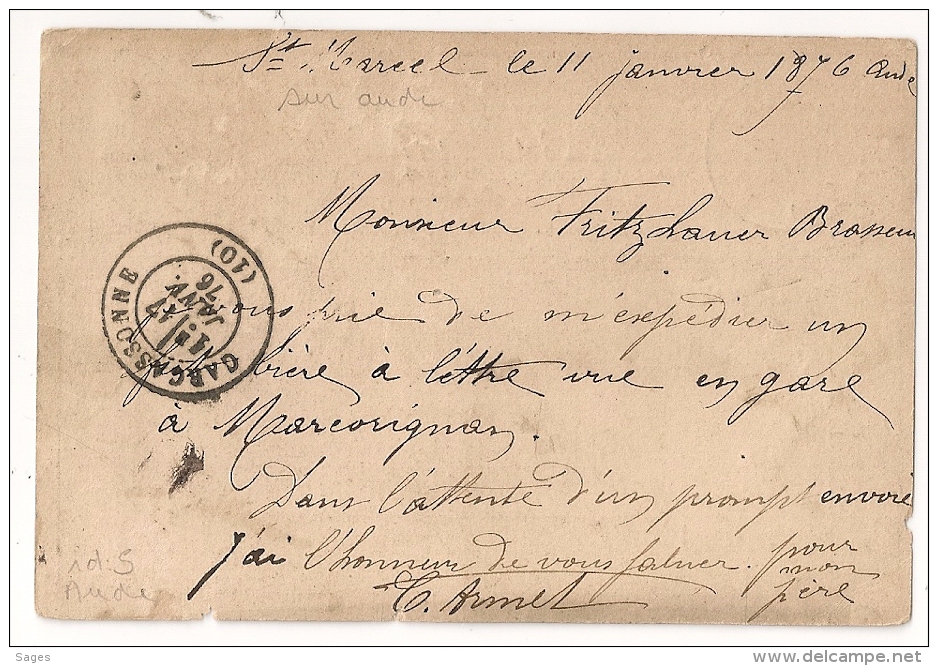 St. Marcel le 11 janvier 1876 Aude
sur aude
Monsieur Fritzhauer Brasseur
Je vous prie de m'expédier un
fut bière à lettre vue en gare
à Marcorignan.
Dans l'attente d'un prompt envoie
j'ai l'honneur de vous saluer. pour
mon
père
C. Armet
CARCASSONNE (10)
JANV.
76
id: S
Aude
Sages
www.delcampe.net